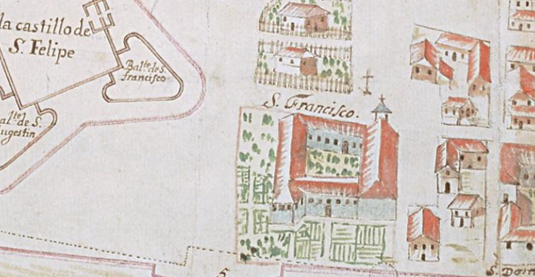 la castillo de
S. Felipe
Balte. de S.
francisco
alte de S.
ugestin
S. Francisco.
5
S. Dom